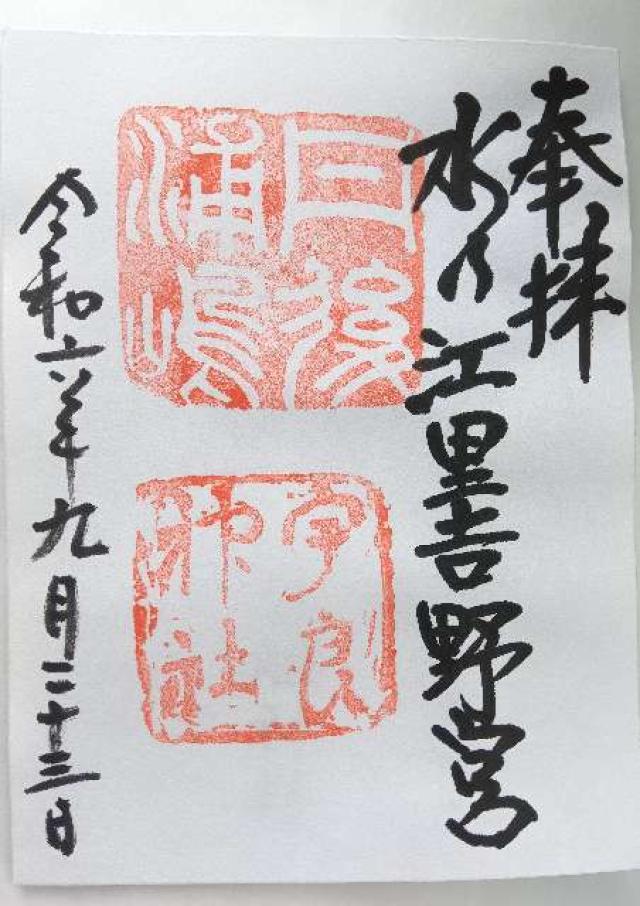 奉拝
水乃江里吉野宮
丹後
浦嶋
宇良
神社
令和六年九月二十三日